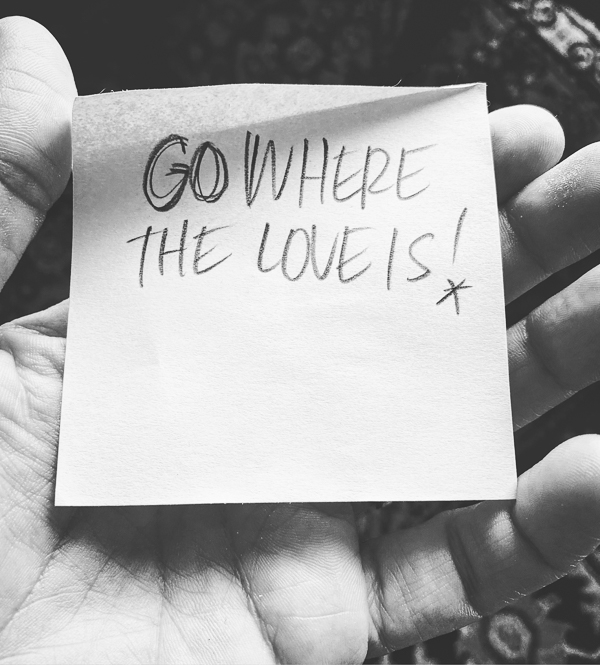 GO WHERE
THE LOVE IS!